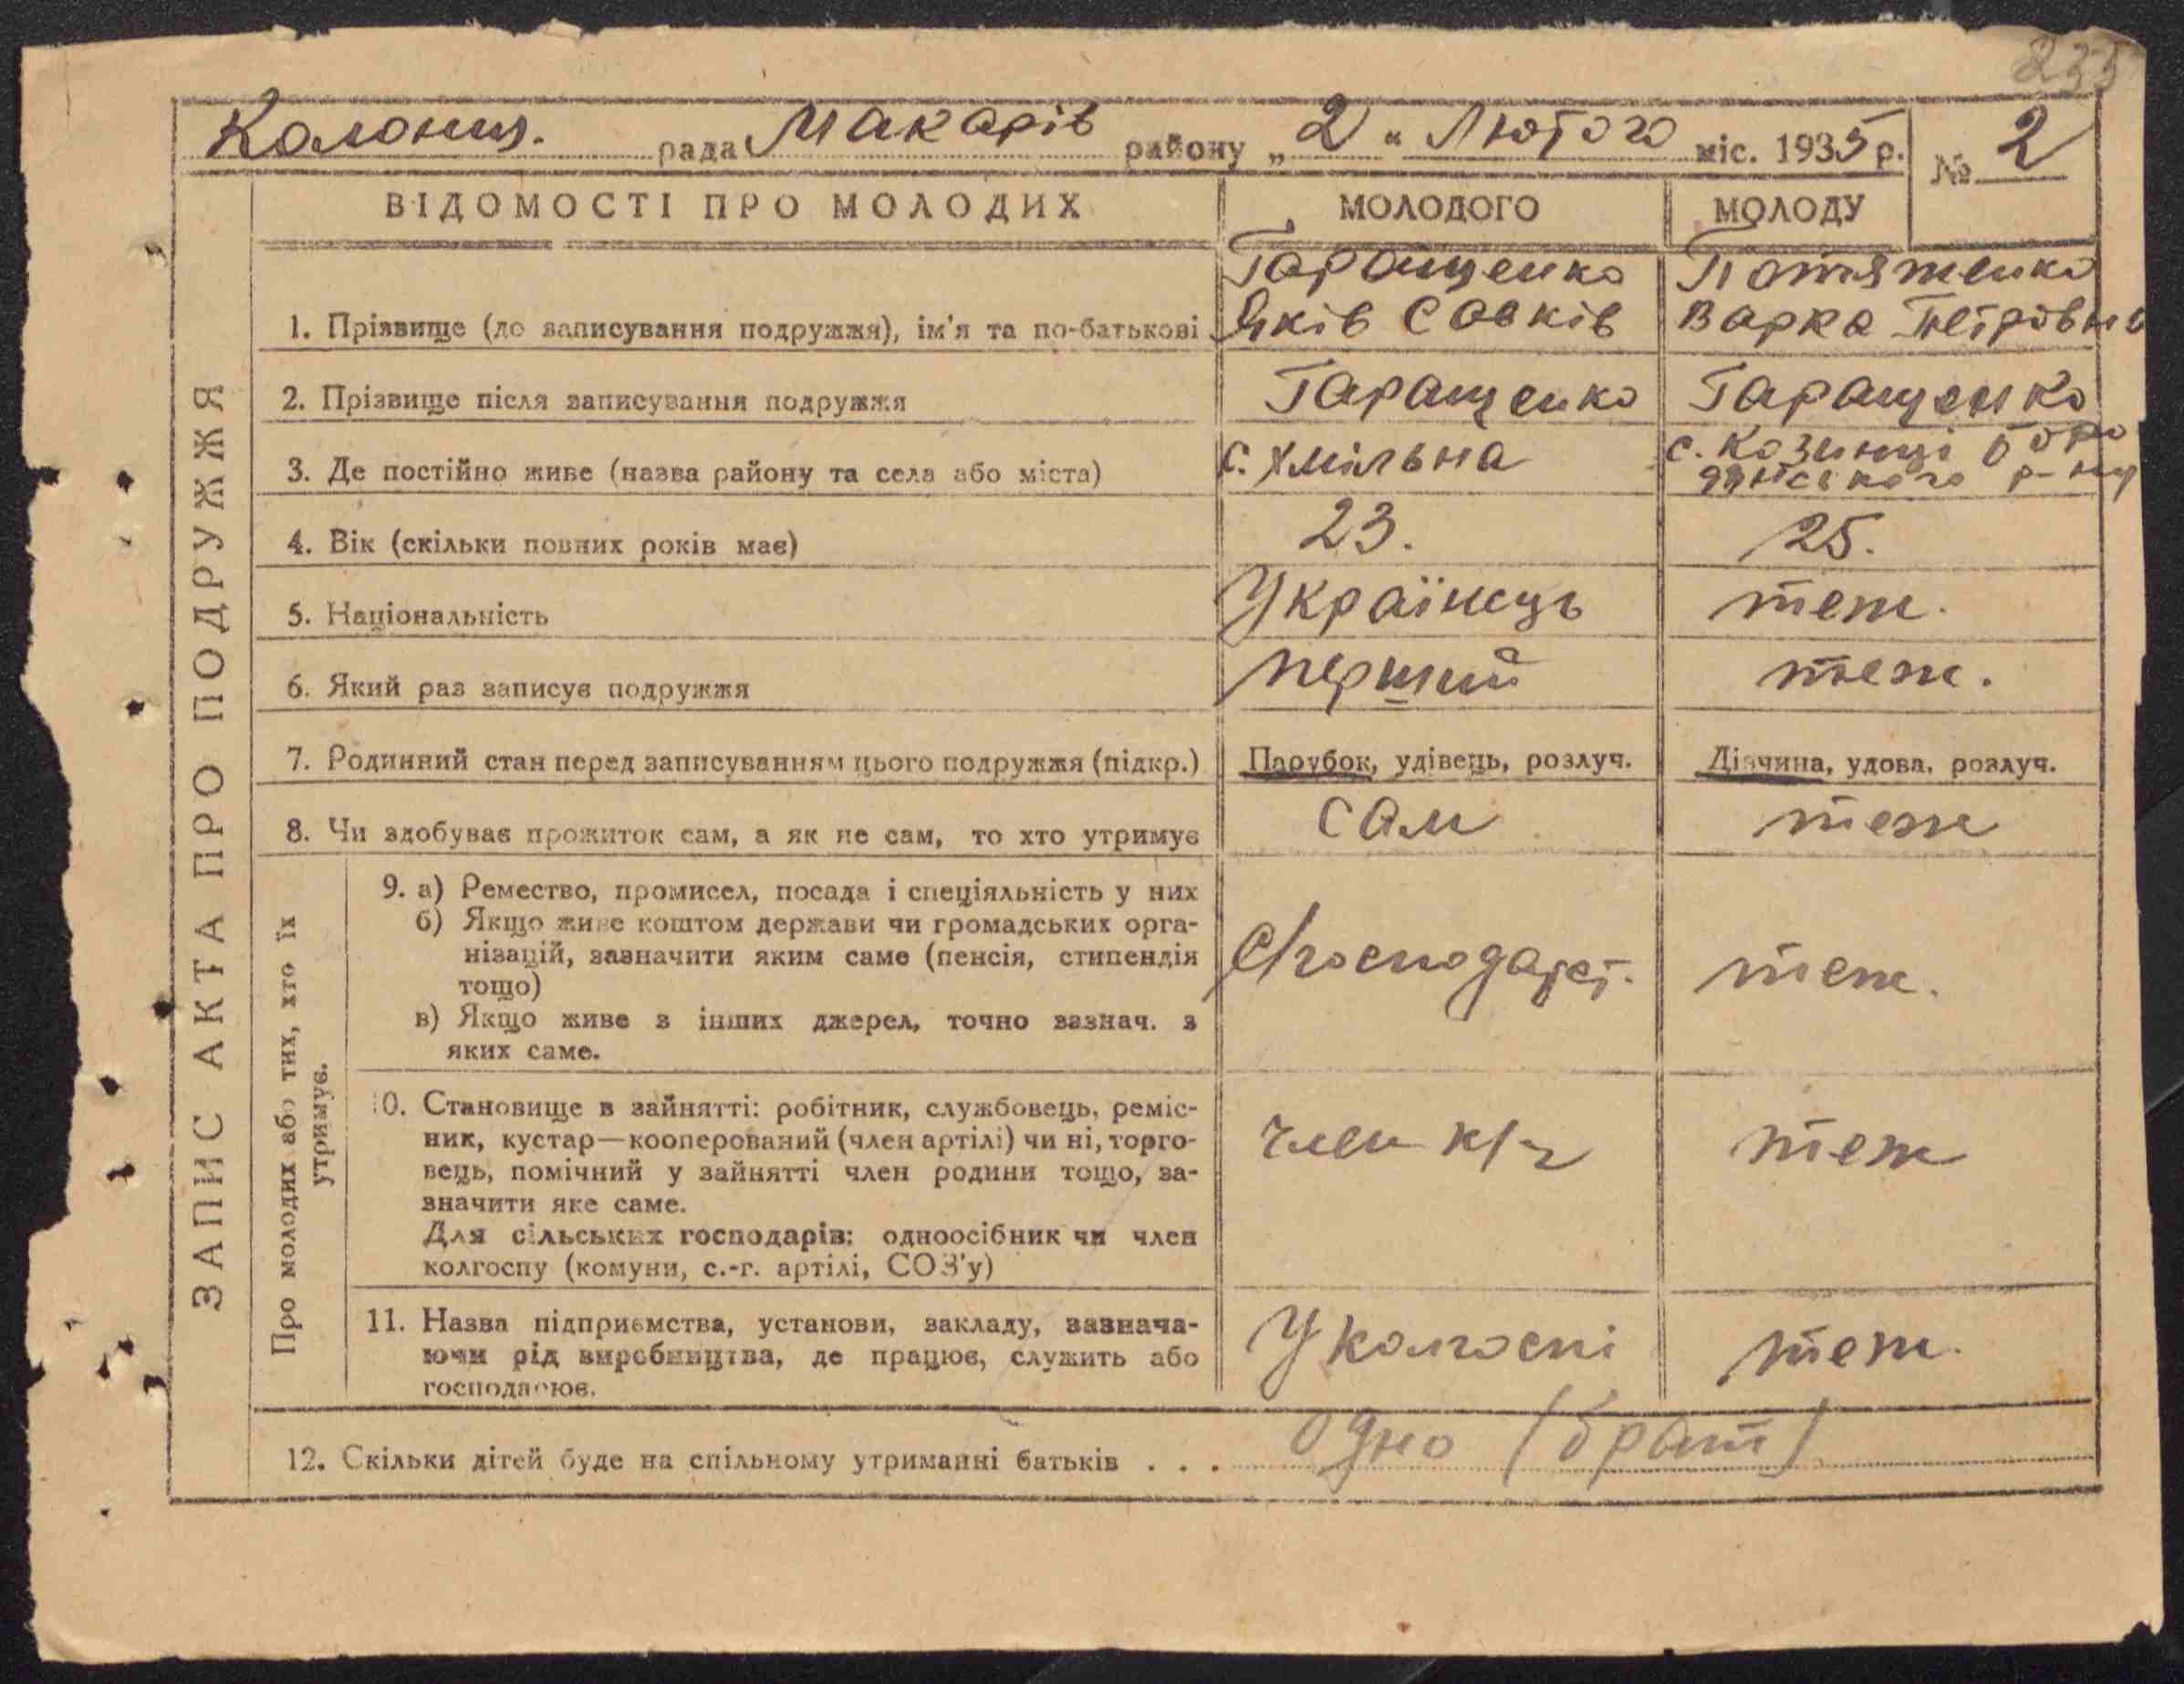 235
Колонщ. рада Макарів району „2“ Лютого міс. 1935 р. № 2
ВІДОМОСТІ ПРО МОЛОДИХ МОЛОДОГО МОЛОДУ
ЗАПИС АКТА ПРО ПОДРУЖЖЯ
1. Прізвище (до записування подружжя), ім'я та по-батькові
Таращенко
Яків Савків
Потятенко
Варка Петрівна
2. Прізвище після записування подружжя Таращенко Таращенко
3. Де постійно живе (назва району та села або міста) с. Хмільна
с. Козинці Боро
дянського р-ну
4. Вік (скільки повних років має) 23. 25.
5. Національність Українець теж.
6. Який раз записує подружжя перший теж.
7. Родинний стан перед записуванням цього подружжя (підкр.) Парубок, удівець, розлуч. Дівчина, удова, розлуч.
8. Чи здобуває прожиток сам, а як не сам, то хто утримує сам теж
Про молодих або тих, хто їх
утримує.
9. а) Ремество, промисел, посада і спеціяльність у них
б) Якщо живе коштом держави чи громадських орга-
нізацій, зазначити яким саме (пенсія, стипендія
тощо)
в) Якщо живе з інших джерел, точно зазнач. з
яких саме.
С/господарст. теж.
10. Становище в зайнятті: робітник, службовець, реміс-
ник, кустар—кооперований (член артілі) чи ні, торго-
вець, помічний у зайнятті член родини тощо, за-
значити яке саме.
Для сільських господарів: одноосібник чи член
колгоспу (комуни, с.-г. артілі, СОЗ'у)
член к/г теж
11. Назва підприємства, установи, закладу, зазнача-
ючи рід виробництва, де працює, служить або
господарює.
У колгоспі теж.
12. Скільки дітей буде на спільному утриманні батьків . . . Одно (брат)